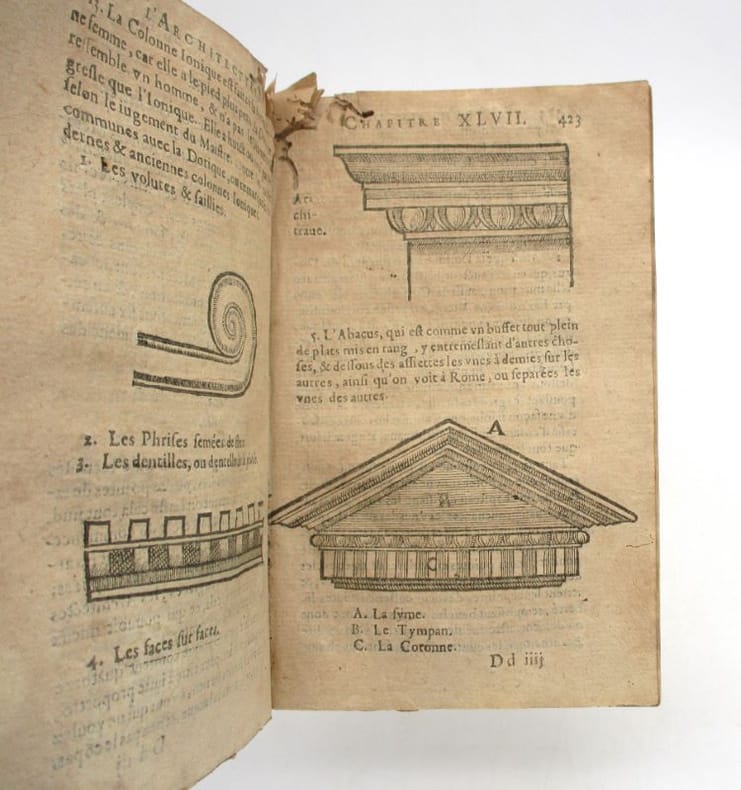 L'ARCHITECT
13. La Colonne Ionique est faite
ne femme, car elle a le pied plus
ressemble vn homme, & n'a pas
gresle que l'Ionique. Elle a
selon le iugement du Maistre.
communes auec la Dorique,
dernes & anciennes colonnes Ioniques
1. Les volutes & saillies.
2. Les Phrises semées de
3. Les dentilles, ou
4. Les faces sur faces.
CHAPITRE XLVII. 423
Arc
chi-
traue.
5. L'Abacus, qui est comme vn buffet tout plein
de plats mis en rang, y entremeslant d'autres cho-
ses, & dessous des assiettes les vnes à demies sur les
autres, ainsi qu'on voit à Rome, ou separées les
vnes des autres.
A
B
C
A. La syme.
B. Le Tympan.
C. La Coronne.
Dd iiij